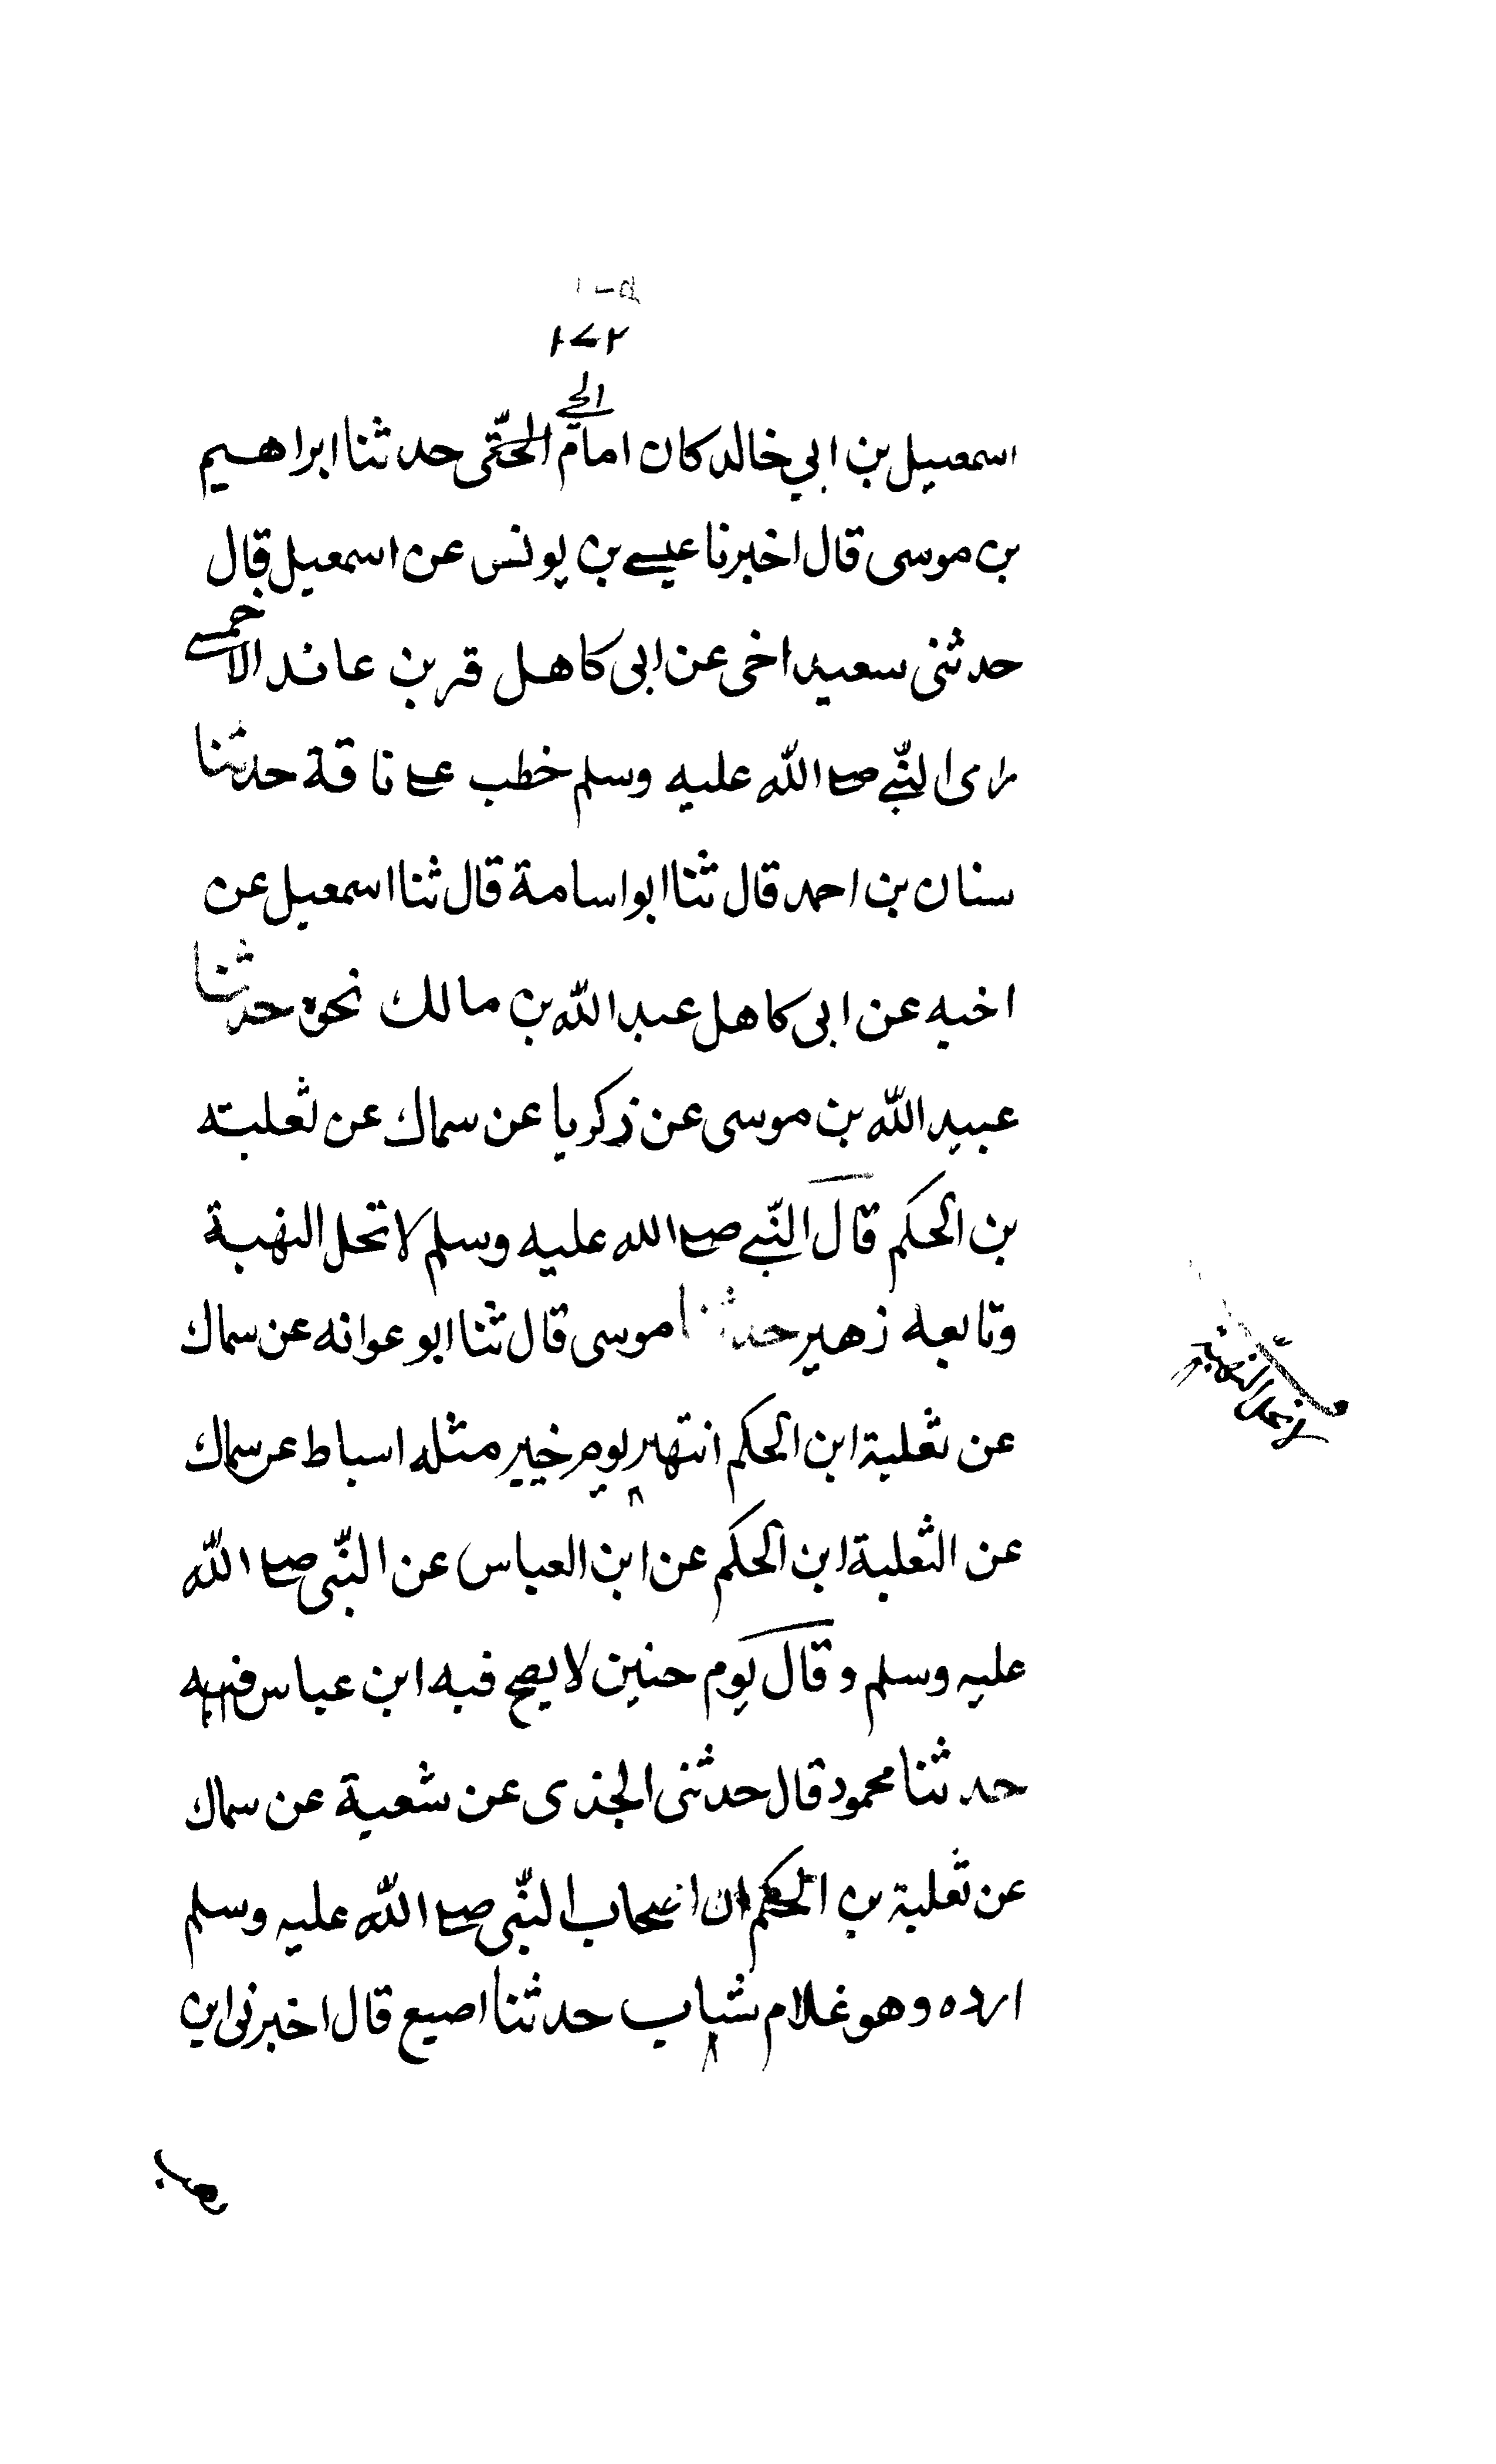 ١٧٢
الحي
اسمعيل بن ابي خالد كان امام الحتمى حدثنا ابراهيم
بن موسى قال اخبرنا عيسى بن يونس عن اسمعيل قال
حدثنى سعيد اخى عن ابى كاهل قر بن عائد الاحمسى
راى النبي صلى الله عليه وسلم خطب على ناقة حدثنا
سنان بن احمد قال ثنا ابو اسامة قال ثنا اسمعيل عن
اخيه عن ابى كاهل عبد الله بن مالك نحوه حدثنا
عبيد الله بن موسى عن زكريا عن سماك عن ثعلبته
بن الحكم قال النبي صلى الله عليه وسلم لا تحل النهبة
وتابعه زهير حدثنا موسى قال ثنا ابو عوانه عن سماك
لا تحل النهبة
عن ثعلبة ابن الحكم انتهر يوم خيبر مثله اسباط عن سماك
عن الثعلبة ابن الحكم عن ابن العباس عن النبى صلى الله
عليه وسلم و قال يوم حنين لا يصح فيه ابن عباس
حدثنا محمود قال حدثنى الجذى عن شعبة عن سماك
عن ثعلبة بن الحكم ان اصحاب النبى صلى الله عليه وسلم
ارده وهو غلام شباب حدثنا اصبع قال اخبرنى ابن